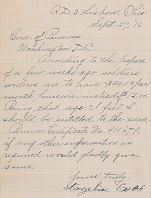 R.D. 3 Lisbon, Ohio
Sept. 27, 16
Com. of Pensions
Washington D.C.
According to the papers
of a few weeks ago soldiers
widows are to have $20.00 per
month, pension instead $12.00
Being that age I feel I
should be entitled to the same
Pension Certificate No. 411679.
if any other information is
required would gladly give
same.
Yours truly